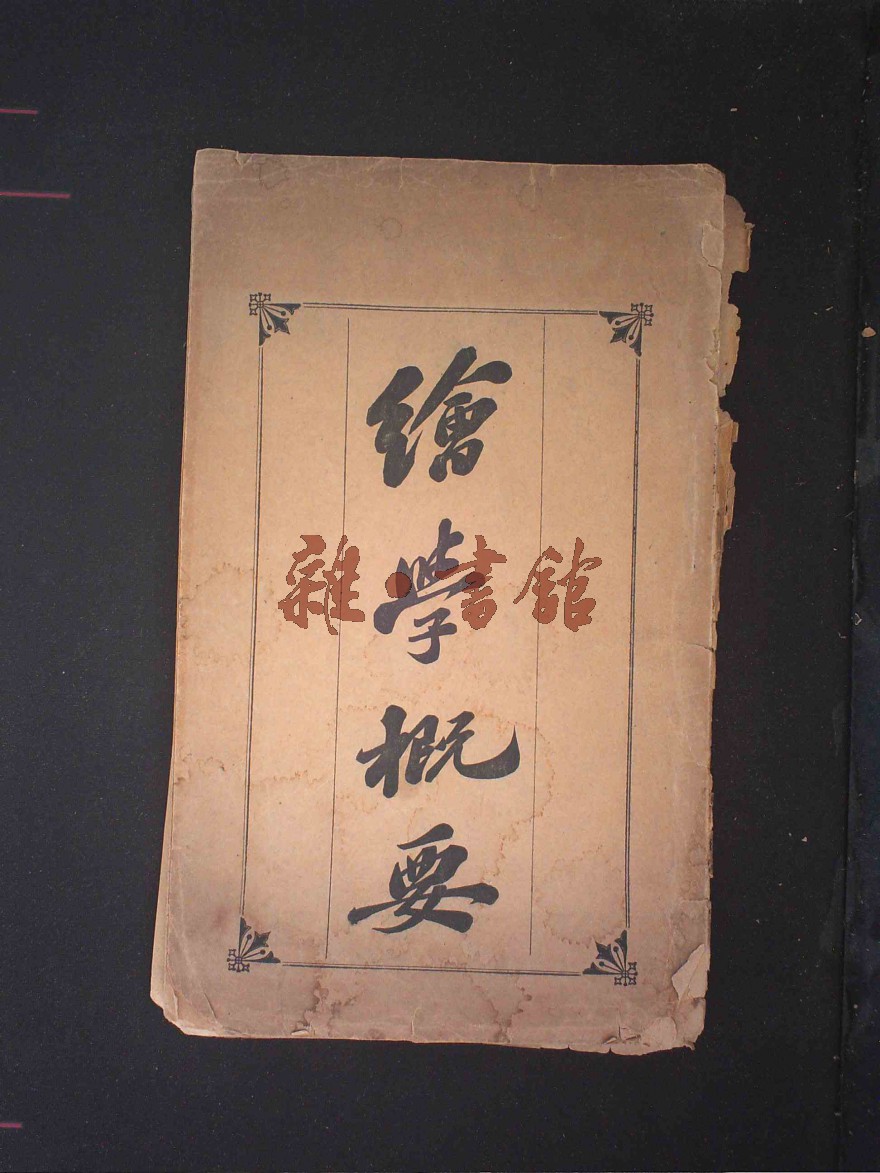 繪學概要
雜·書館